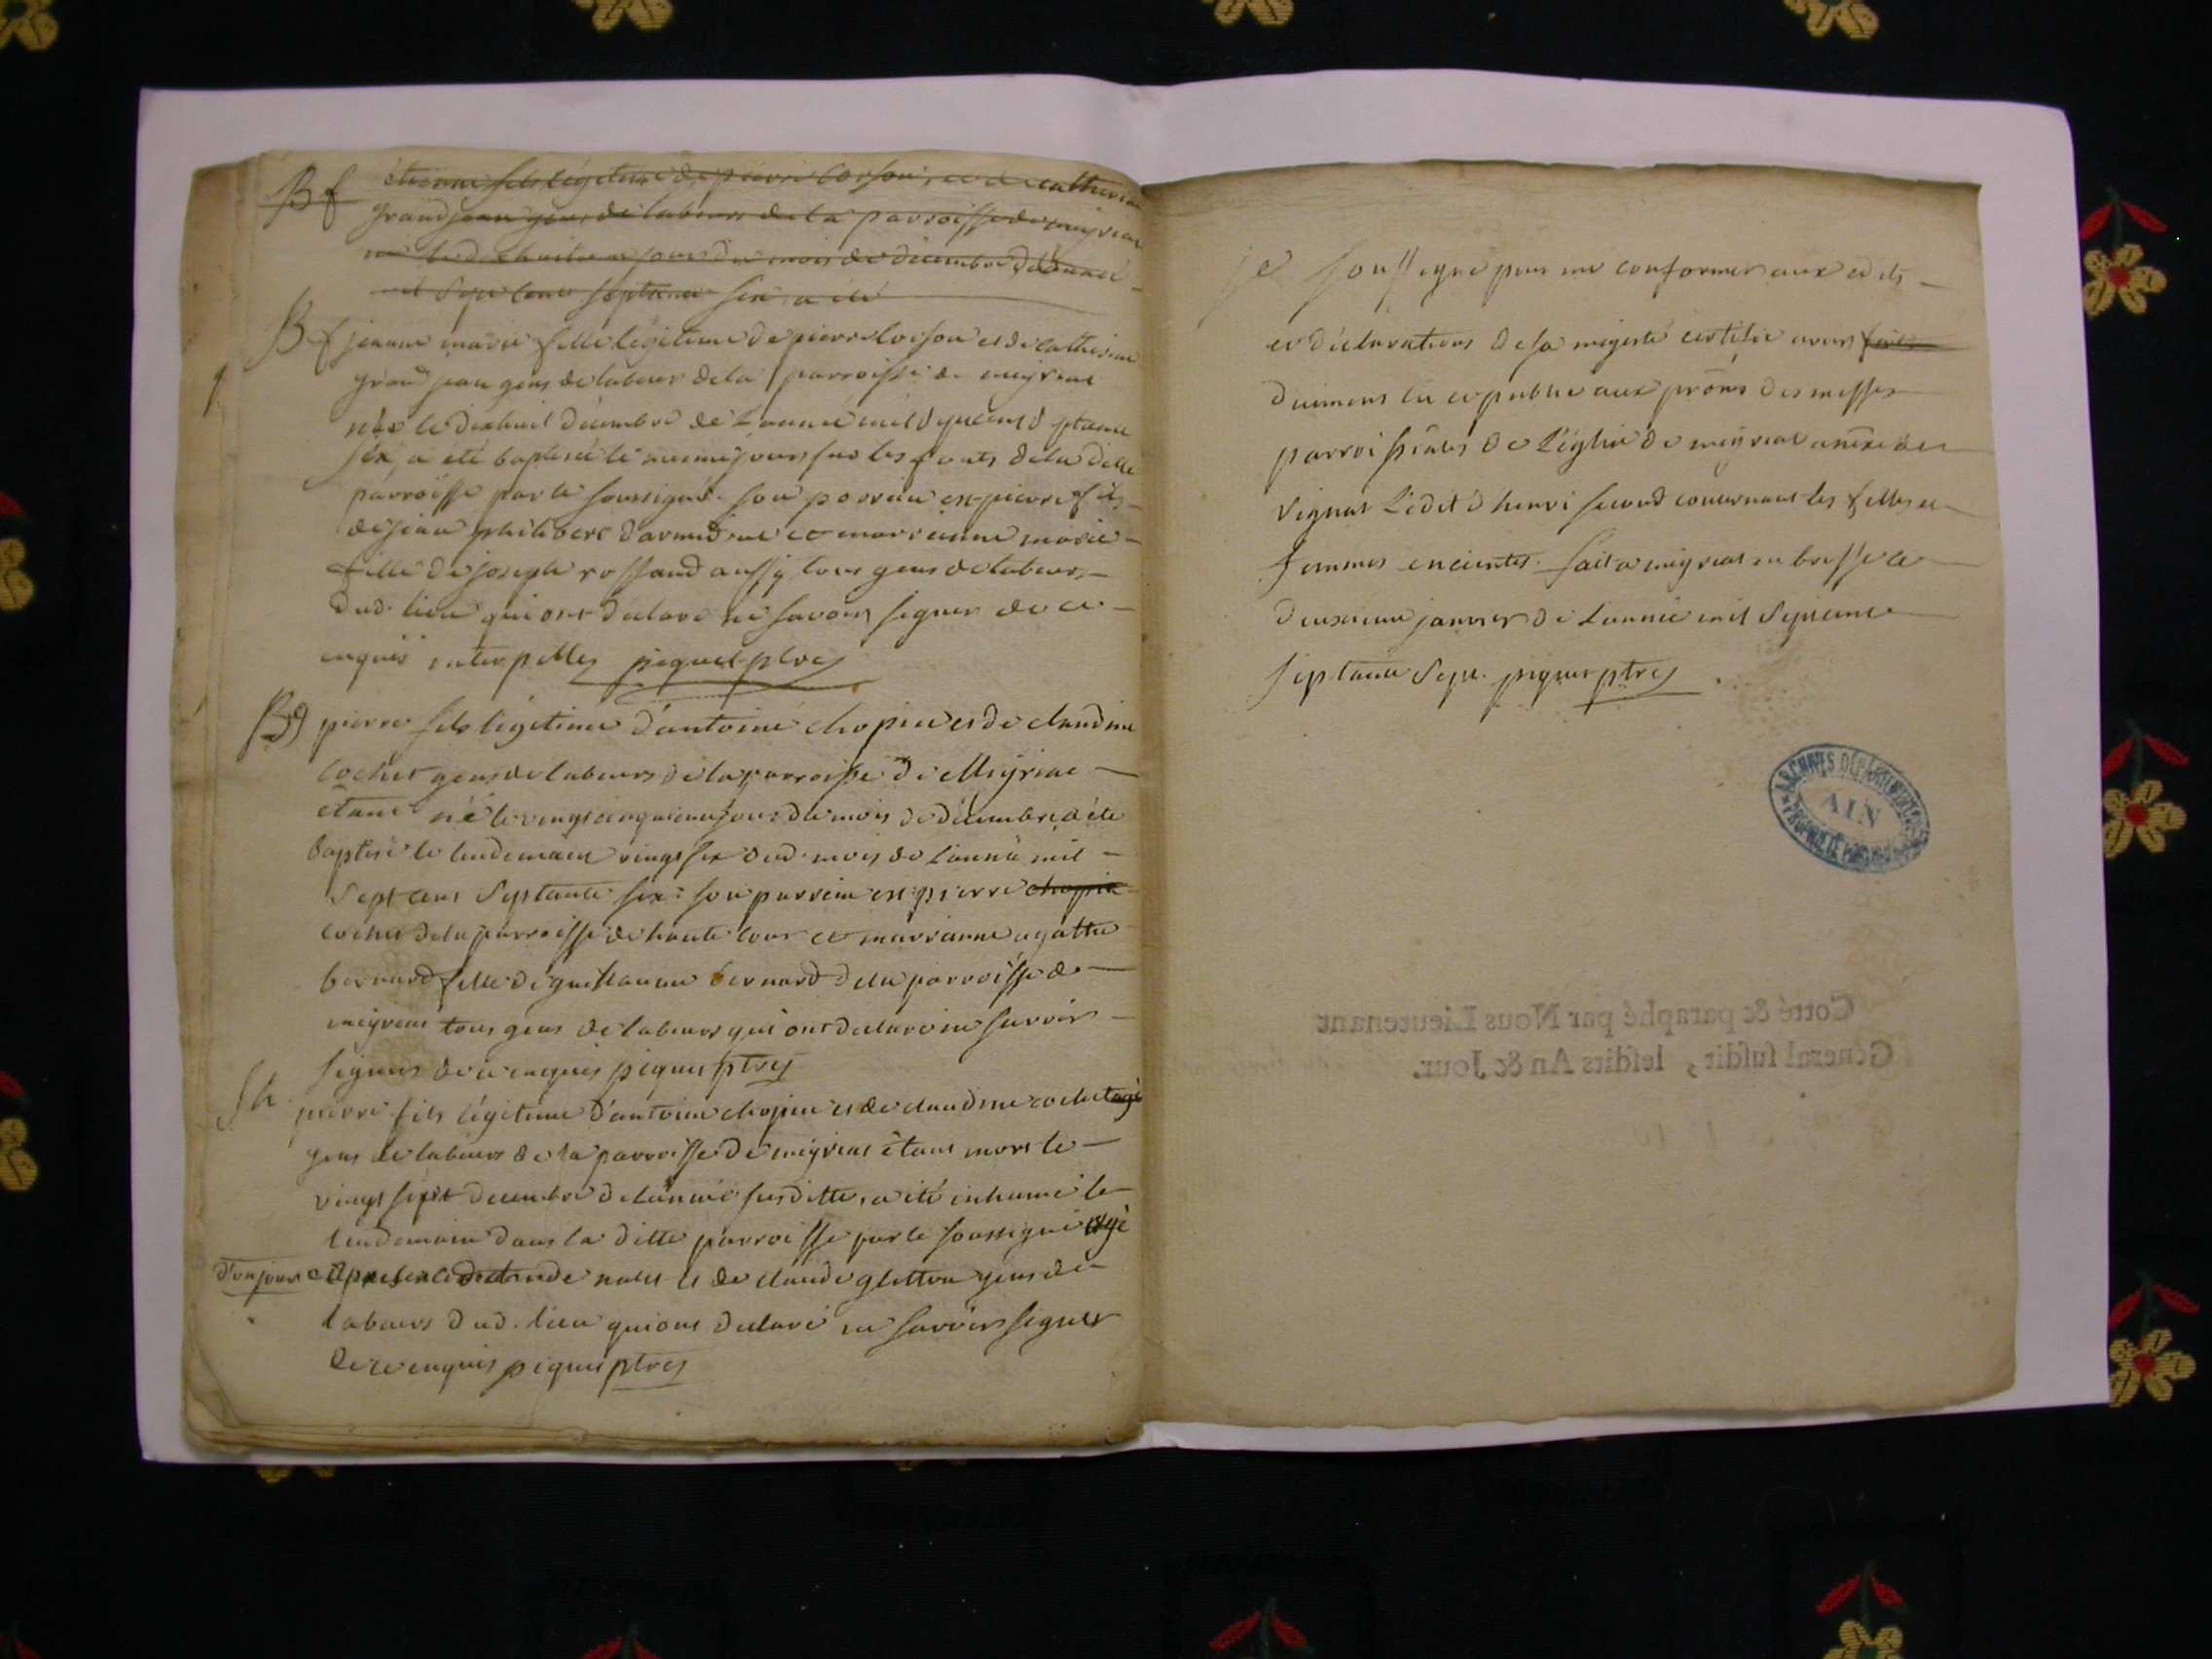 Bf étienne fils légitime de pierre loison, et de catherine
grand jean gens de labeurs de la parroisse de meyriat
né led. jour du mois de décembre de l'année
mil sept cent septante six a été
Bf jeanne marie fille légitime de pierre loison et de catherine
grand jean gens de labeur de la parroisse de meyriat
née le dixhuit décembre de l'année mil sept cent septante
six, a été baptisée le meme jour sur les fonts de la ditte
parroisse par le soussigné. son parrein est pierre fils
de jean philibert et marrienne marie
fille de joseph rossand aussy tous gens de labeurs
dud. lieu qui ont declaré ne savoir signer de ce
enquis interpellés piquet ptre
Bg pierre fils légitime d'antoine chopin et de claudine
cochet gens de labeurs de la parroisse de Meyriat
étant né le vingt cinquieme jour du mois de décembre a été
baptisé le lendemain vingt six dud. mois de l'année mil
sept cent septante six: son parrein est pierre chopin
cochet de la parroisse de haute cour et marrienne agathe
bernard fille de guillaume bernard de la parroisse de
meyriat tous gens de labeurs qui ont declaré ne savoir
signer de ce enquis piquet ptre
Sh. pierre fils légitime d'antoine chopin et de claudine cochet agé
gens de labeurs de la parroisse de meyriat étant mort le
vingt sept decembre de l'année susditte, a été inhumé le
lendemain dans la ditte parroisse par le soussigné agé
d'un jour en presence de et de claude gletton gens de
labeurs dud. lieu qui ont declaré ne savoir signer
de ce enquis piquet ptre
je soussigné pour me conformer aux edits
et déclarations de sa majesté certifie avoir fait
duement lu et publié aux prônes des messes
parroissiales de l'église de meyriat annexe de
l'édit d'henri second concernant les filles et
femmes enceintes. fait a meyriat en bresse le
deuxieme janvier de l'année mil sept cent
septante sept. piquet ptre
ARCHIVES DÉPARTEMENTALES
AIN
Cotté & paraphé par Nous Lieutenant
Général susdit, lesdits An & Jour.